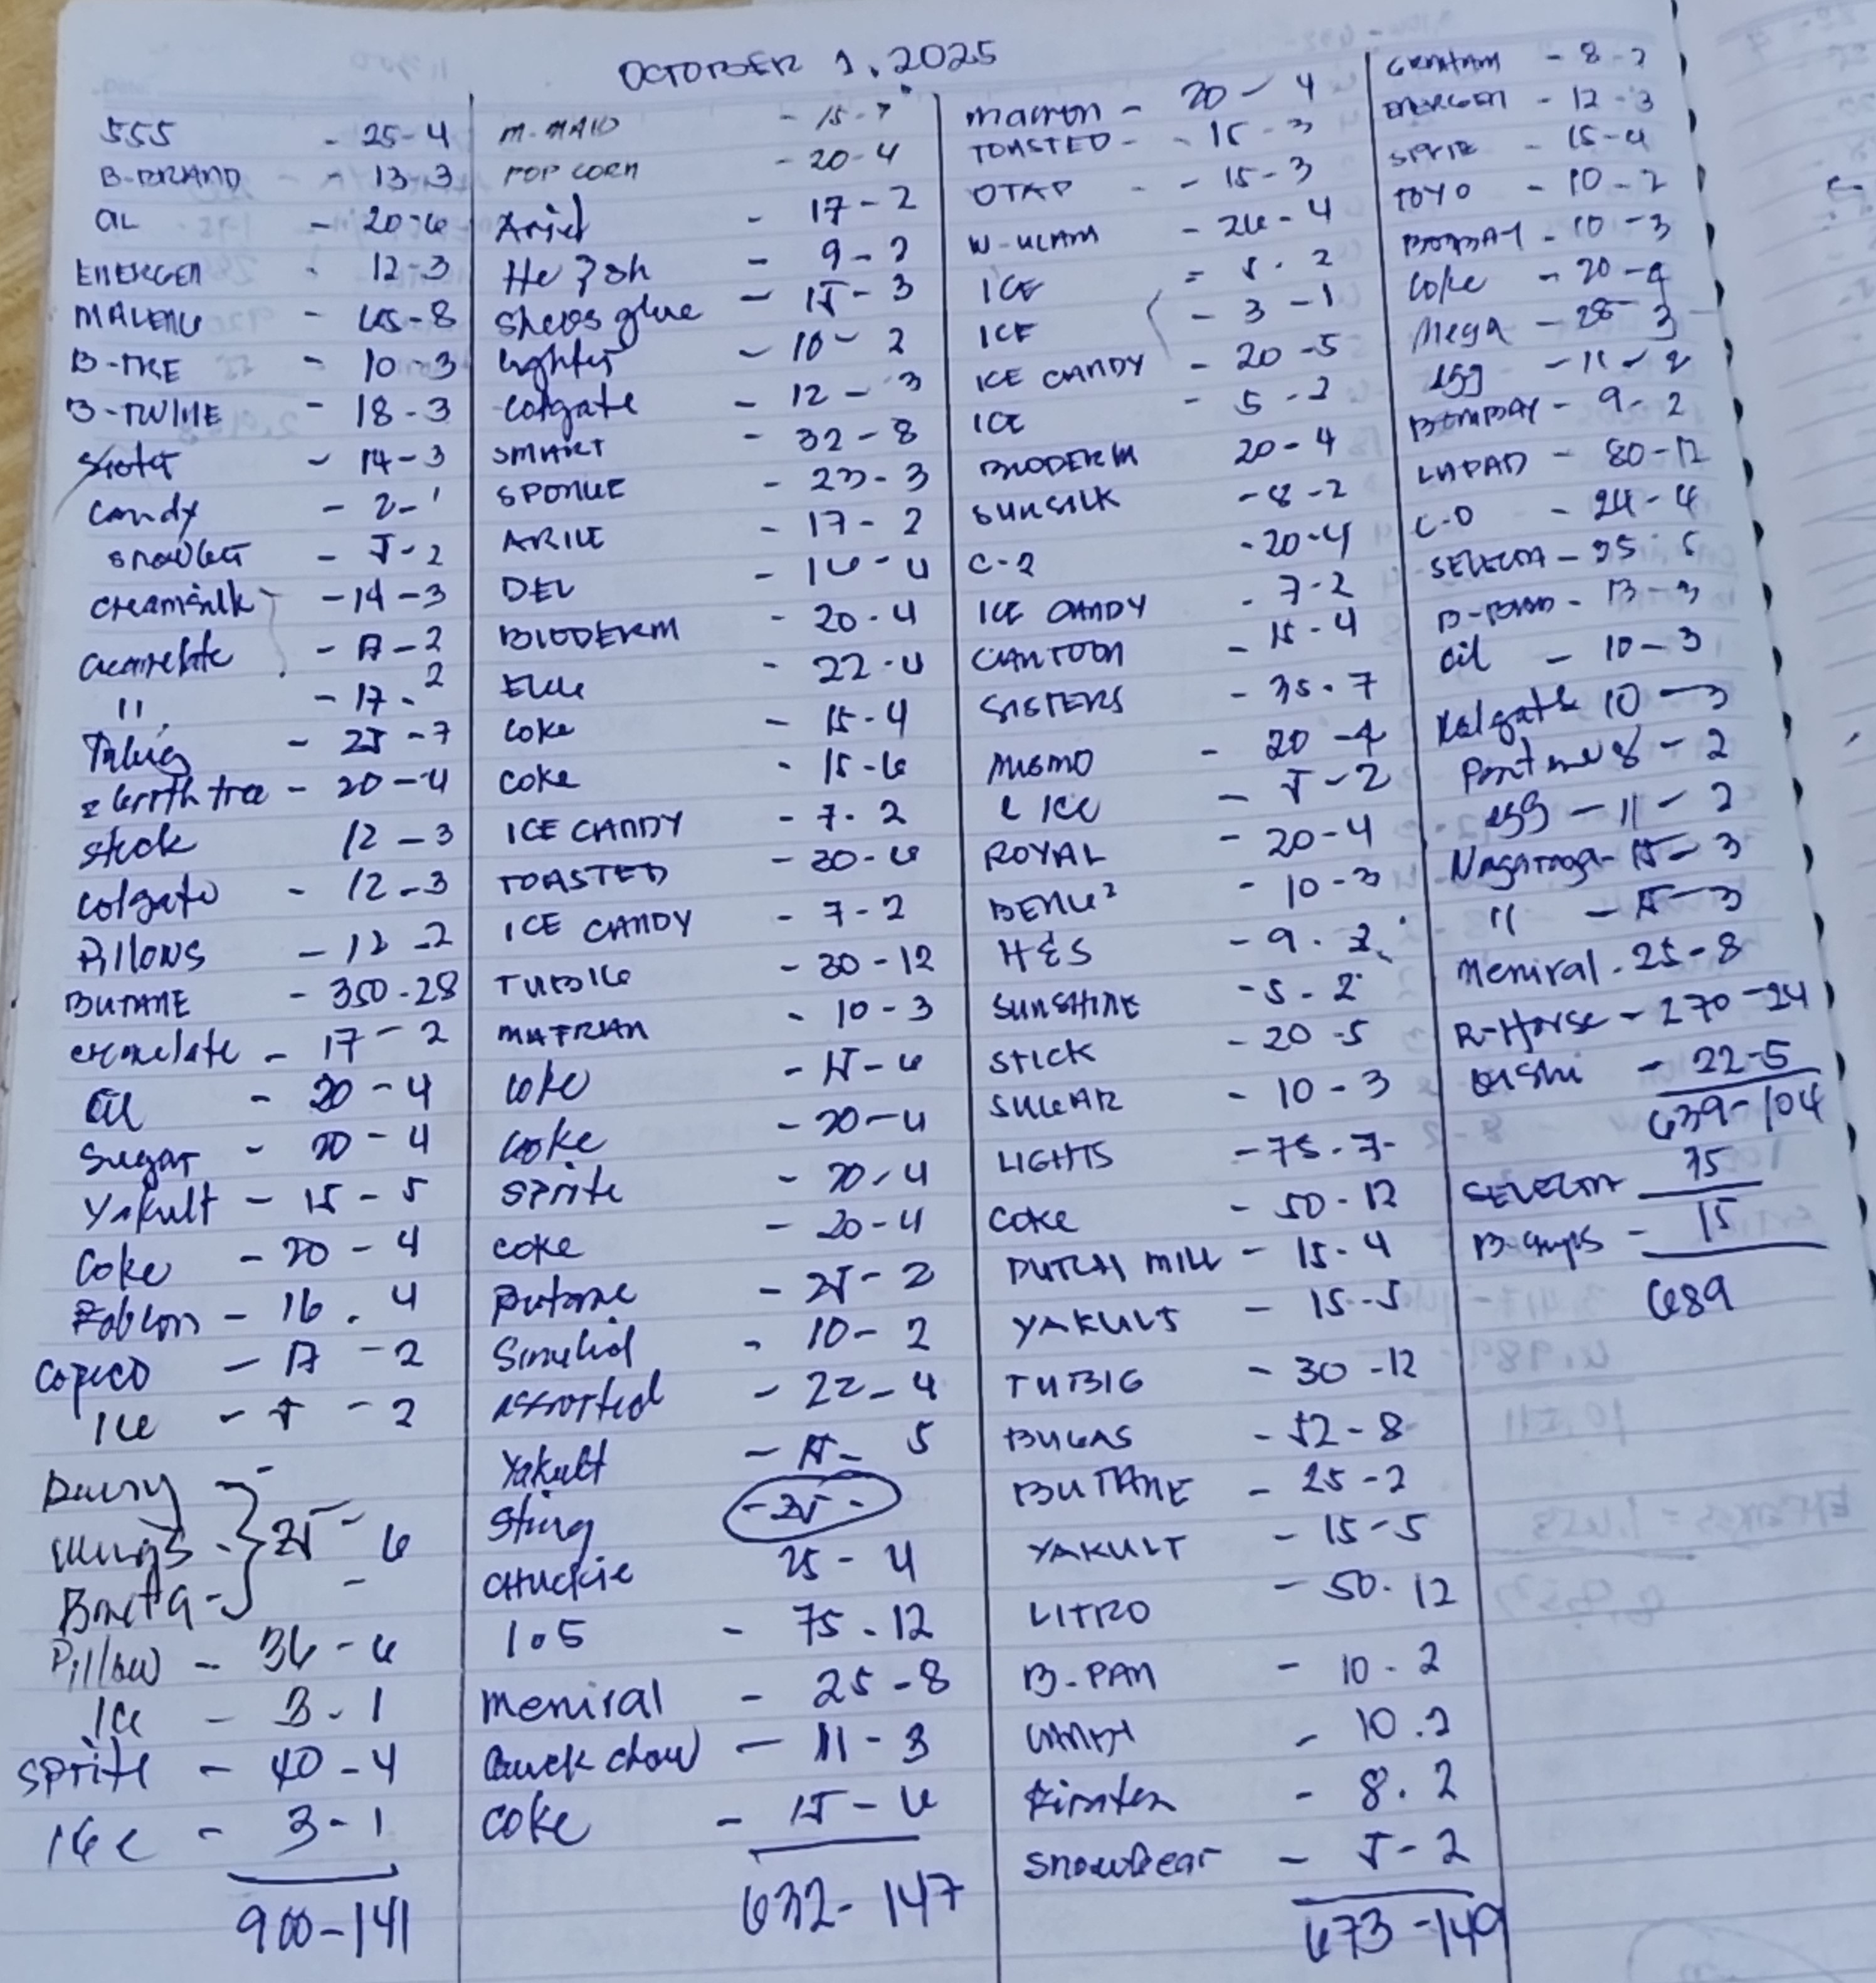 OCTOBER 1, 2025
555 - 25-4
B-BRAND - 13-3
OIL - 20-6
ENERGEN - 12-3
MALENG - 45-8
B-TKE - 10-3
B-TWINE - 18-3
- 14-3
Candy - 2-1
Snowbear - 5-2
creamsilk - 14-3
creamelate - 17-2
11 - 17-2
Tubig - 25-7
birth tree - 20-4
stick 12-3
Colgate - 12-3
PillOWS - 12-2
BUTANE - 350-28
cremelate - 17-2
Oil - 20-4
Sugar - 20-4
Yakult - 15-5
Coke - 20-4
Fabcon - 16.4
COPICO - 17-2
Ice - 5-2
Downy -
Wings - } 25-6
Bareta -
Pillow - 36-6
Ice - 3-1
Sprite - 40-4
Ice - 3-1
900-141
M-MAID - 15-7
POP CORN - 20-4
Ariel - 17-2
He & sh - 9-2
Shoes glue - 15-3
lighter - 10-2
Colgate - 12-3
SMART - 32-8
SPONGE - 23-3
ARILE - 17-2
DEL - 16-4
BIODERM - 20-4
22-4
Coke - 15-4
Coke - 15-6
ICE CANDY - 7-2
TOASTED - 30-6
ICE CANDY - 7-2
TUBIG - 30-12
MAFRAN - 10-3
Coke - 15-6
Coke - 20-4
Sprite - 20-4
Coke - 20-4
Butane - 25-2
Sinulid - 10-2
assorted - 22-4
Yakult - 15-5
Sting - 25-
CHUCKIE 25-4
1.5 - 75-12
Meniral - 25-8
Quick chow - 11-3
Coke - 15-6
632-147
Macron - 20-4
TOASTED - 15-3
OTAP - 15-3
W-ULAM - 26-4
ICE - 5.2
ICE - 3-1
ICE CANDY - 20-5
ICE - 5-2
BIODERM 20-4
SUNSILK - 8-2
C-2 - 20-4
ICE CANDY - 7-2
CANTOON - 15-4
SISTERS - 35-7
MISMO - 20-4
ICE - 5-2
ROYAL - 20-4
BENG2 - 10-3
H&S - 9-2
SUNSHINE - 5-2
STICK - 20-5
SUGAR - 10-3
LIGHTS - 75-7-
COKE - 50-12
DUTCH MILL - 15-4
YAKULT - 15-5
TUBIG - 30-12
BUGAS - 52-8
BUTANE - 25-2
YAKULT - 15-5
LITRO - 50-12
B-PAN - 10-2
- 10.2
- 8.2
Snowbear - 5-2
673-149
GRAHAM - 8-2
ENERGEN - 12-3
SPRITE - 15-4
TOYO - 10-2
BOMBAY - 10-3
Coke - 20-4
Mega - 28-3
egg - 11-2
BOMBAY - 9-2
LAPAD - 80-12
C-O - 24-4
SELECTA - 35-5
B-BRAND - 13-3
Oil - 10-3
Kolgate 10-3
Pantene 8-2
egg - 11-2
Nagaraya - 15-3
11 - 15-3
Meniral - 25-8
R-Horse - 270-24
OISHI - 22-5
639-104
SELECTA 35
B-gups - 15
689